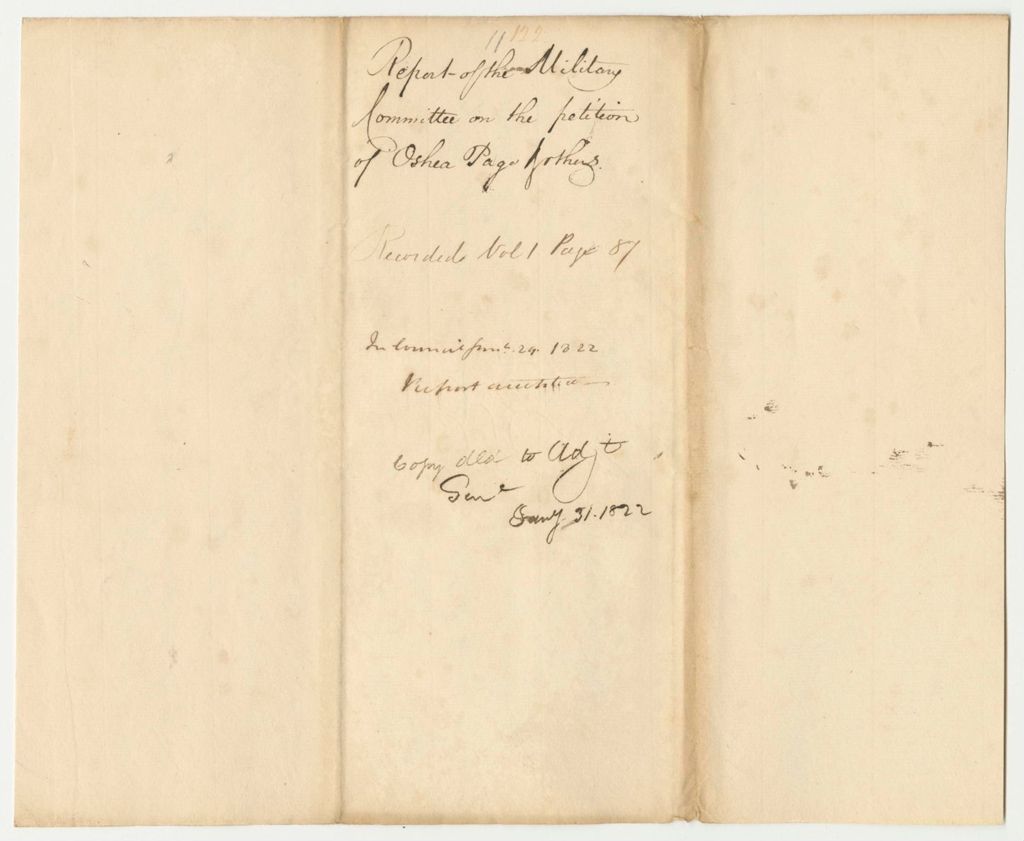 11 122
Report of the Military
Committee on the petition
of Oshea Page & others.
Recorded Vol 1 Page 87
In Council Jany 29. 1822
Report accepted
Copy dld to Adjt
Genl
Jany 31. 1822